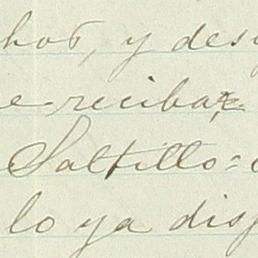 hos, y des
e reciba,
Saltillo=
lo ya disp